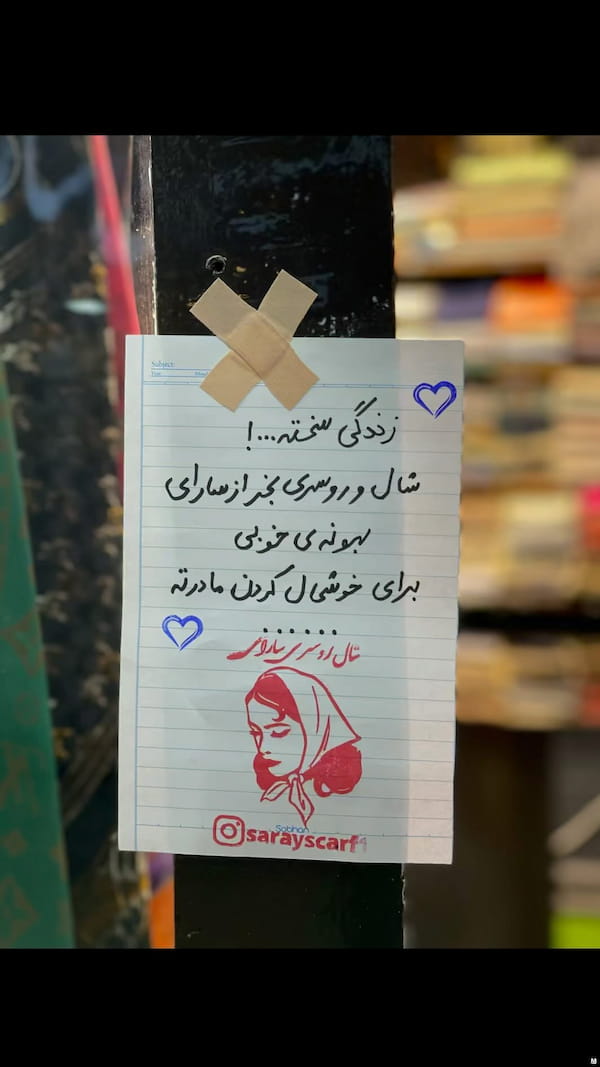 Subject:
زندگی سخته...!
شال و روسری بخر از سارای
بهونه ی خوبی
برای خوشحال کردن مادرته
......
شال روسری سارای
Sobhan
sarayscarf